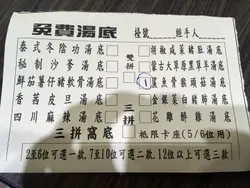 免費湯底 檯號 經手人
泰式冬陰功湯底 胡椒咸菜豬肚湯底
秘制沙爹湯底 雙拼
鮮茄薯仔豬軟骨湯底 鯊魚骨猴頭菇湯底
香茜皮旦湯底 金銀菜白豬肺湯底
四川麻辣湯底 三拼 花雕醉雞湯底
三拼窩底 祇限卡座(5/6位用)
2至6位可選一款, 7至10位可選二款, 12位以上可選三款